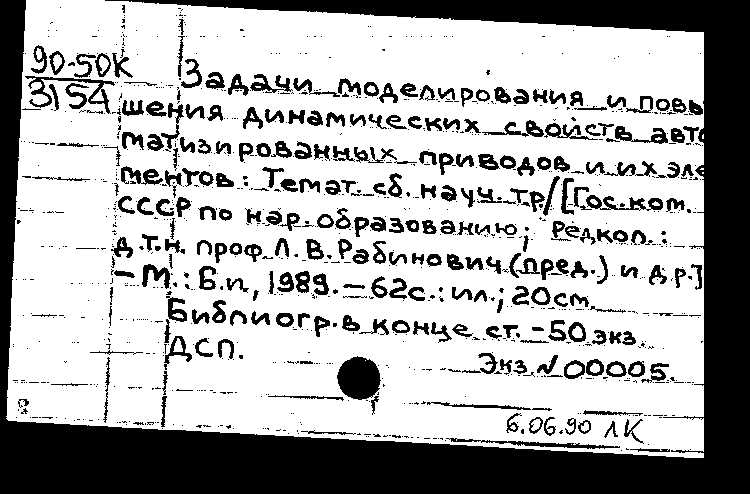 90-50К
3154
Задачи моделирования и повы
шения динамических свойств авто
матизированных приводов и их эле
ментов: Темат. сб. науч. тр/[Гос. ком.
СССР по нар. образованию; Редкол.:
д.т.н. проф Л. В. Рабинович (пред.) и др.]
– М.: Б.и., 1989. – 62с.: ил.; 20см.
Библиогр. в конце ст. – 50 экз.
ДСП. Экз. № 00005.
6.06.90 ЛК